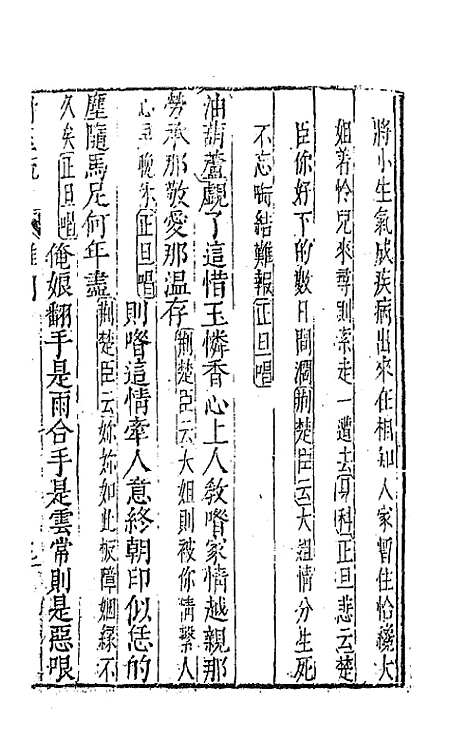 將小生氣成疾病出來在相知人家暫住恰纔大
姐着怜兒來尋則索走一遭去科正旦悲云楚
臣你好下的數日間濶荆楚臣云大姐情分生死
不忘晦結難報正旦唱
油葫蘆覷了這惜玉憐香心上人教喒家情越親那
勞承那敬愛那温存荆楚臣云大姐則被你情繫人
心早晚休正旦唱則喒這情牽人意終朝印似恁的
塵隨馬足何年盡荆楚臣云妳妳如此板障姻緣不
久矣正旦唱俺娘翻手是雨合手是雲常則是惡哏